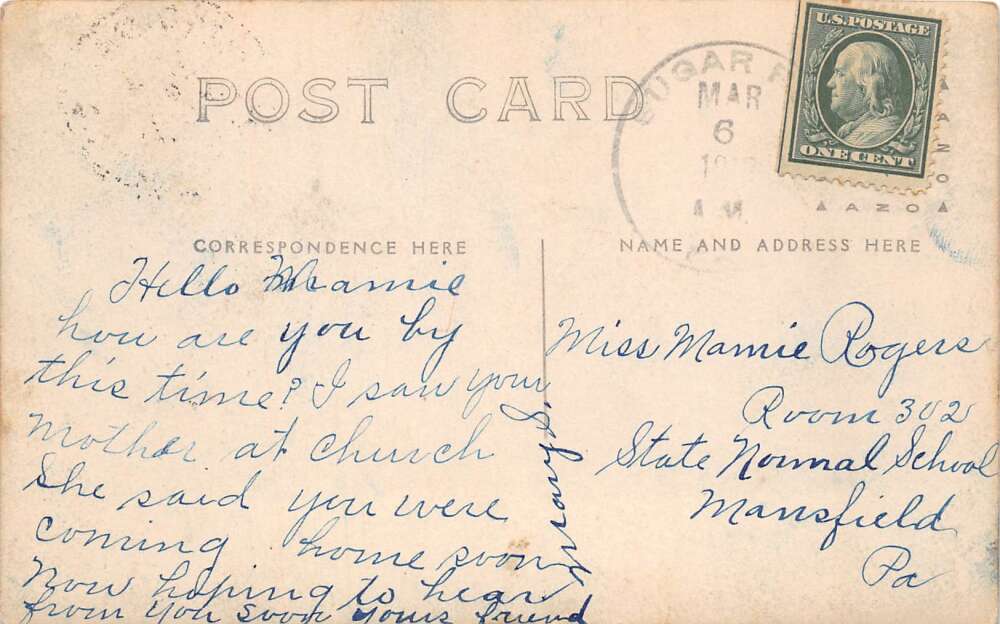 POST CARD
SUGAR R
MAR
6
A.M.
U.S. POSTAGE
ONE CENT
AZO
AZO
CORRESPONDENCE HERE
NAME AND ADDRESS HERE
Hello Mamie
how are you by
this time? I saw your
Mother at church
She said you were
coming home soon
Now hoping to hear
from you soon yours friend
Miss Mamie Rogers
Room 302
State Normal School
Mansfield
Pa